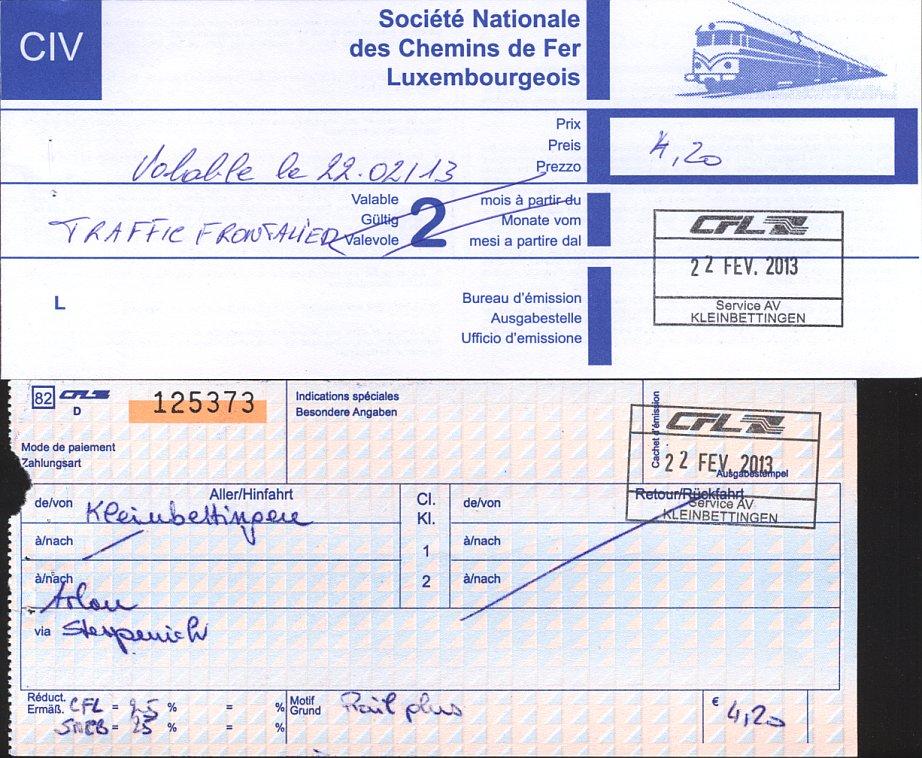 CIV
Société Nationale
des Chemins de Fer
Luxembourgeois
Prix
Preis
Prezzo
4,20
Valable le 22.02/13
Valable
Gültig
Valevole
2
mois à partir du
Monate vom
mesi a partire dal
TRAFFIC FRONTALIER
CFL
22 FEV. 2013
Service AV
KLEINBETTINGEN
L
Bureau d'émission
Ausgabestelle
Ufficio d'emissione
82 CFL
D
125373
Indications spéciales
Besondere Angaben
Cachet d'émission
Ausgabestempel
CFL
22 FEV 2013
Service AV
KLEINBETTINGEN
Mode de paiement
Zahlungsart
Aller/Hinfahrt
Cl.
Kl.
1
2
Retour/Rückfahrt
de/von Kleinbettingen
à/nach
à/nach Arlon
via Sterpenich
de/von
à/nach
à/nach
Réduct.
Ermäß.
CFL = 25 % = %
SNCB = 25 % = %
Motif
Grund
Railplus
€ 4,20